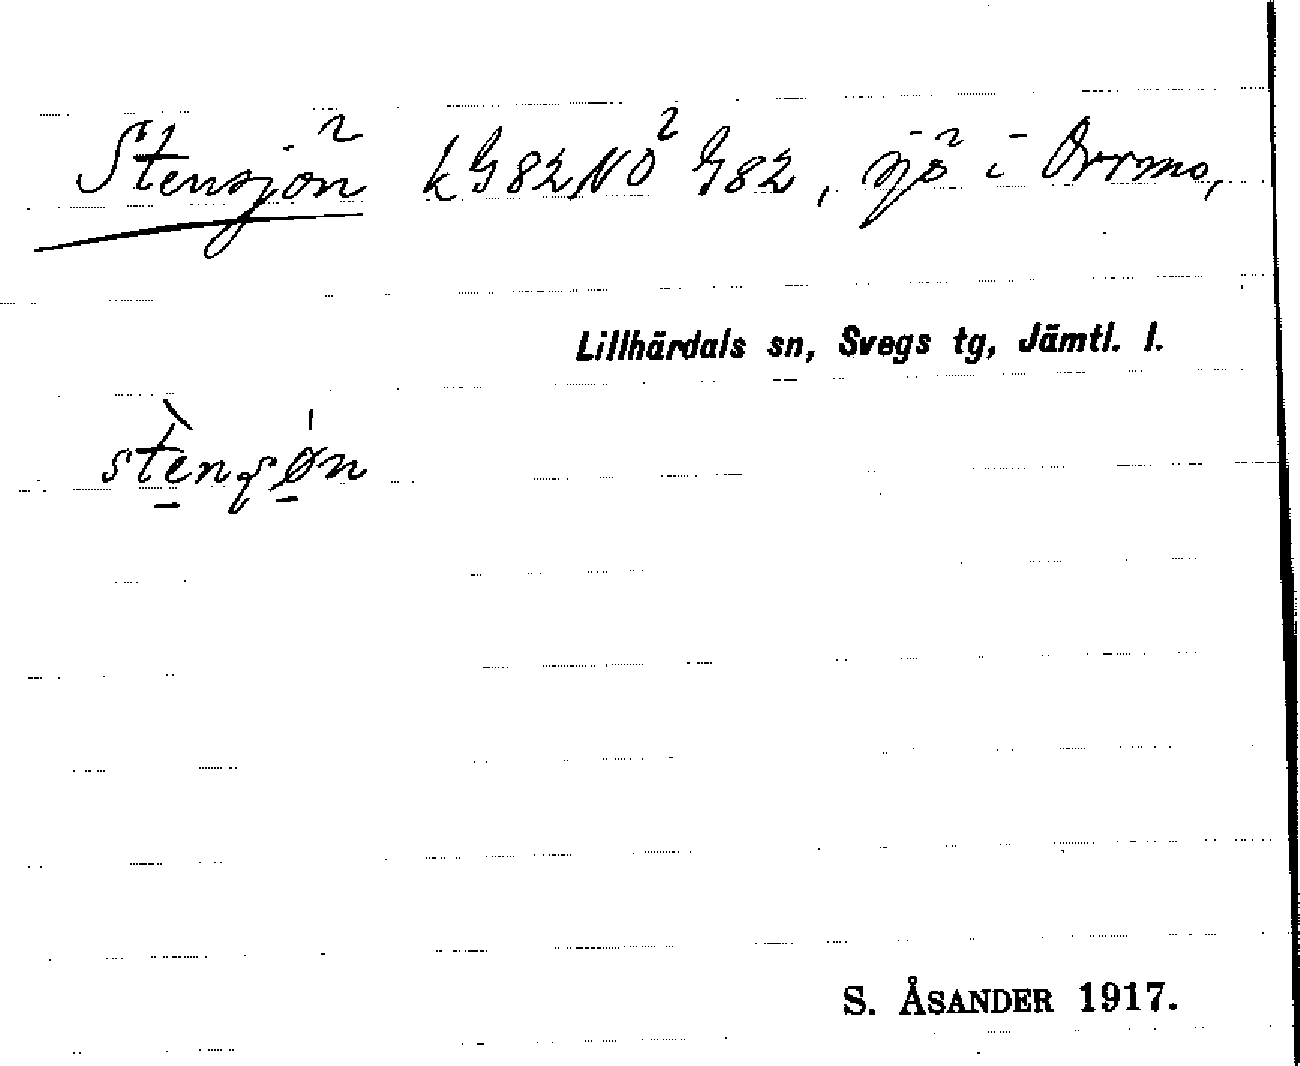 Stensjön kG82NO² G82, sjö i Orrmo,
Lillhärdals sn, Svegs tg, Jämtl. l.
S. ÅSANDER 1917.